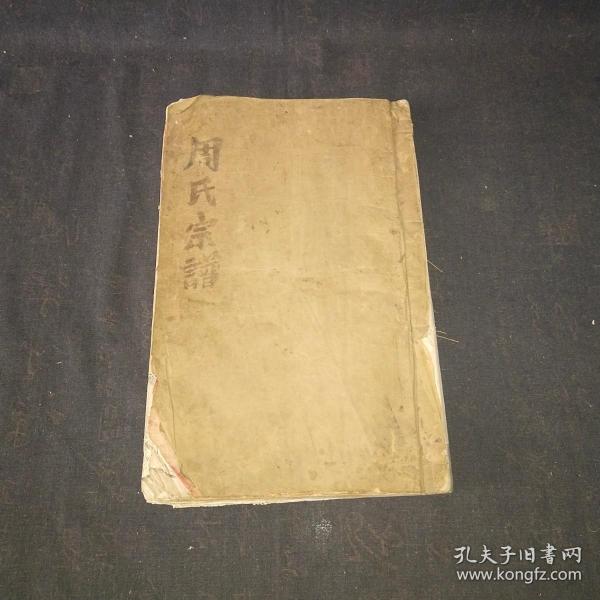 周氏宗譜
孔夫子旧書网
www.kongfz.com